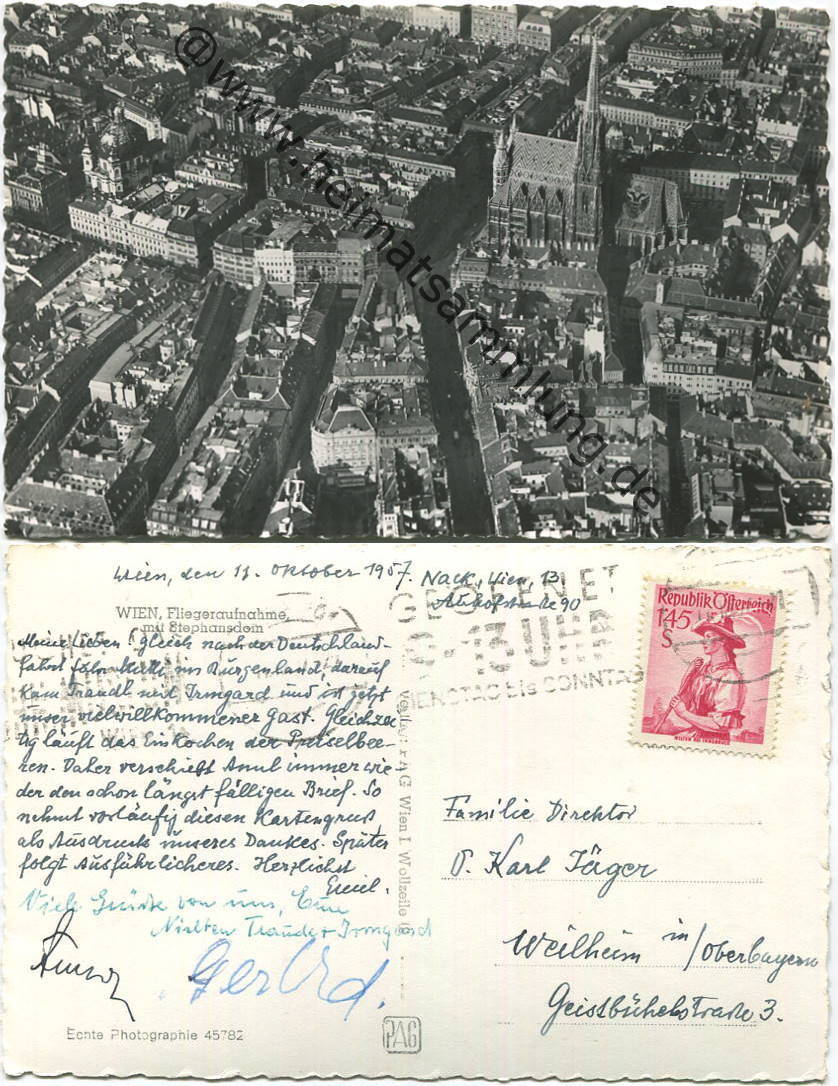 @www.heimatsammlung.de
Wien, den 11. Oktober 1957.
Nack, Wien, 13,
Auhofstraße 90
WIEN, Fliegeraufnahme,
mit Stephansdom
Meine Lieben! Gleich nach der Deutschland-
fahrt ins Burgenland, darauf
kam Traudl mit Irmgard und ist jetzt
unser vielwillkommener Gast. Gleichzei-
tig läuft das Einkochen der Preiselbee-
ren. Daher verschiebt Annl immer wie-
der den schon längst fälligen Brief. So
nehmt vorläufig diesen Kartengruß
als Ausdruck unseres Dankes. Später
folgt Ausführlicheres. Herzlichst
Emil.
Viele Grüße von uns, Eure
Traude + Irmgard
Gerhrd.
Echte Photographie 45782
Verlag: PAG Wien I Wollzeile
PAG
GEÖFFNET
9-13 UHR
DIENSTAG bis SONNTAG
Republik Österreich
1'45
S
Familie Direktor
D. Karl Jäger
Weilheim in/Oberbayern
Geistbühelstraße 3.